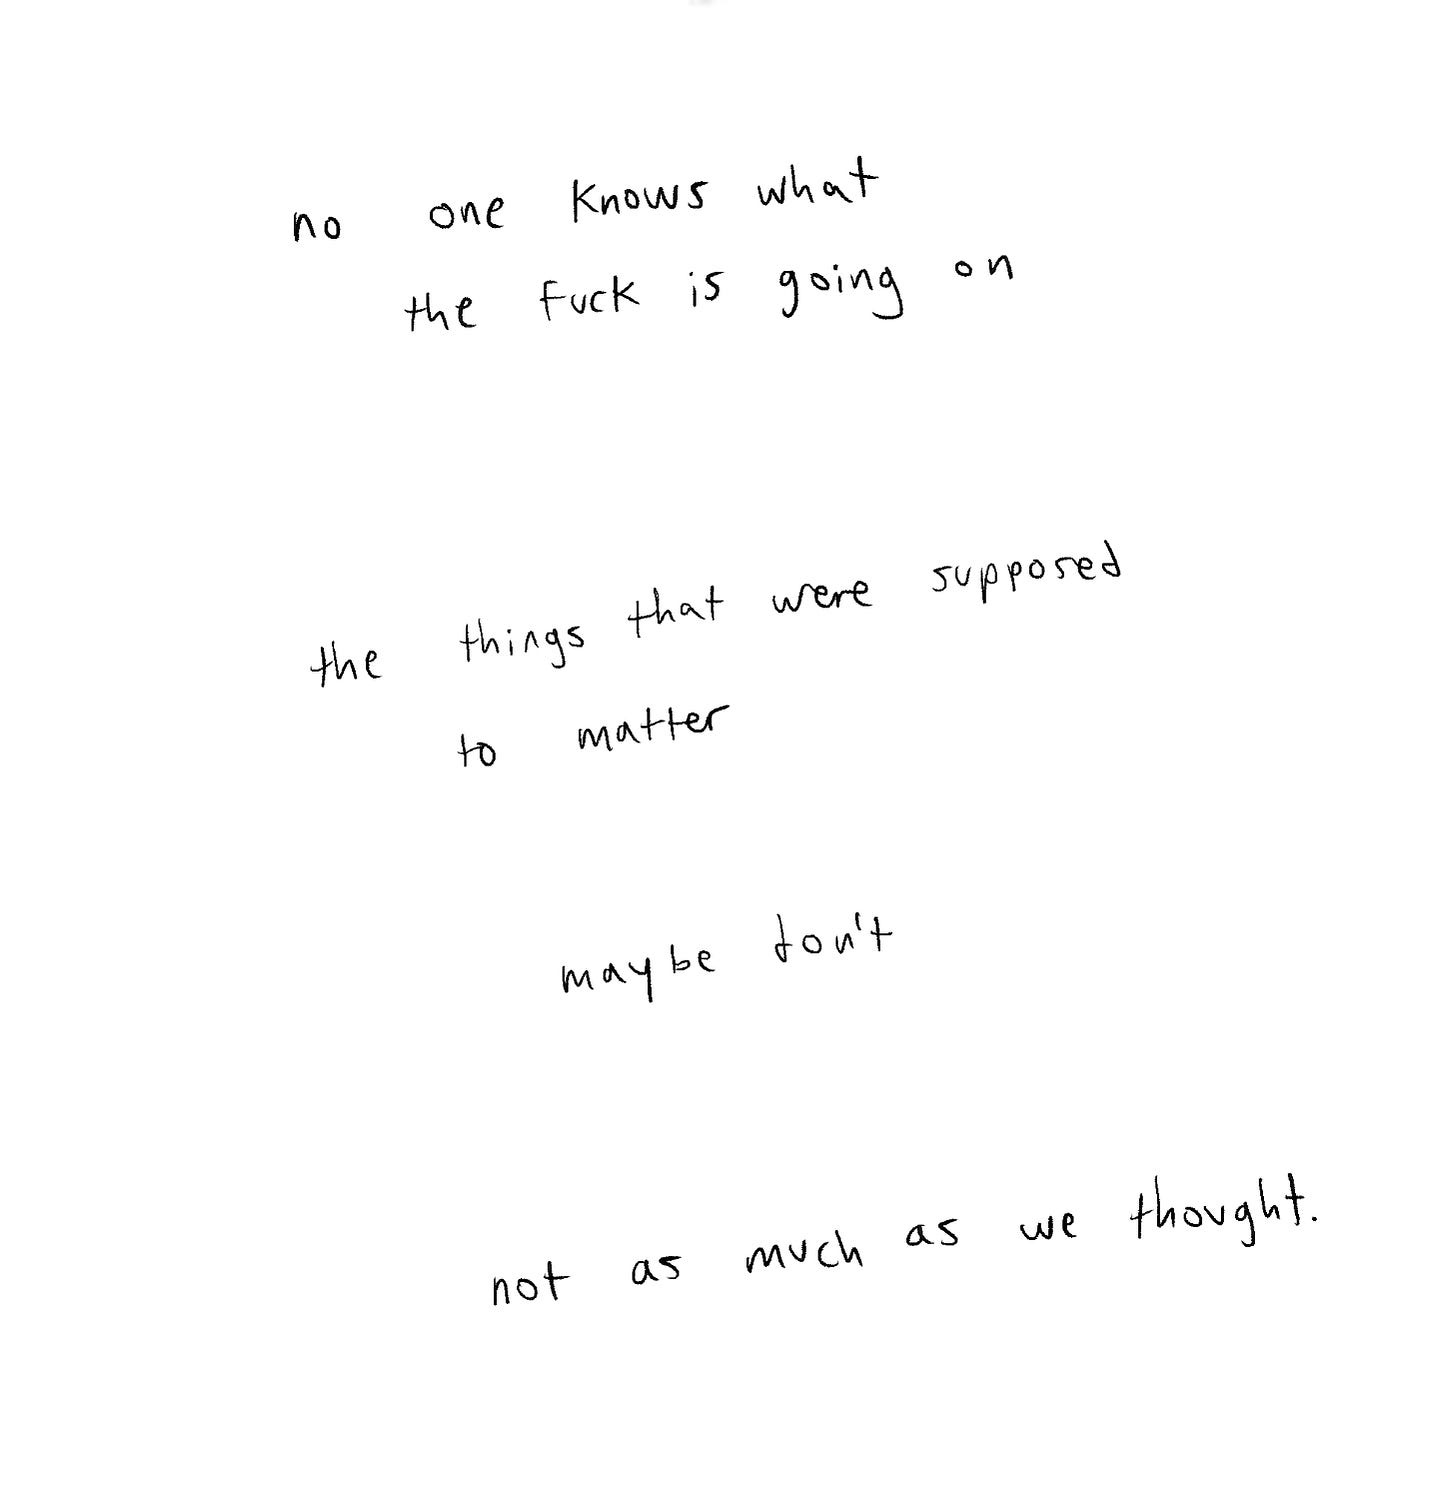 no one knows what
the fuck is going on
the things that were supposed
to matter
maybe don't
not as much as we thought.